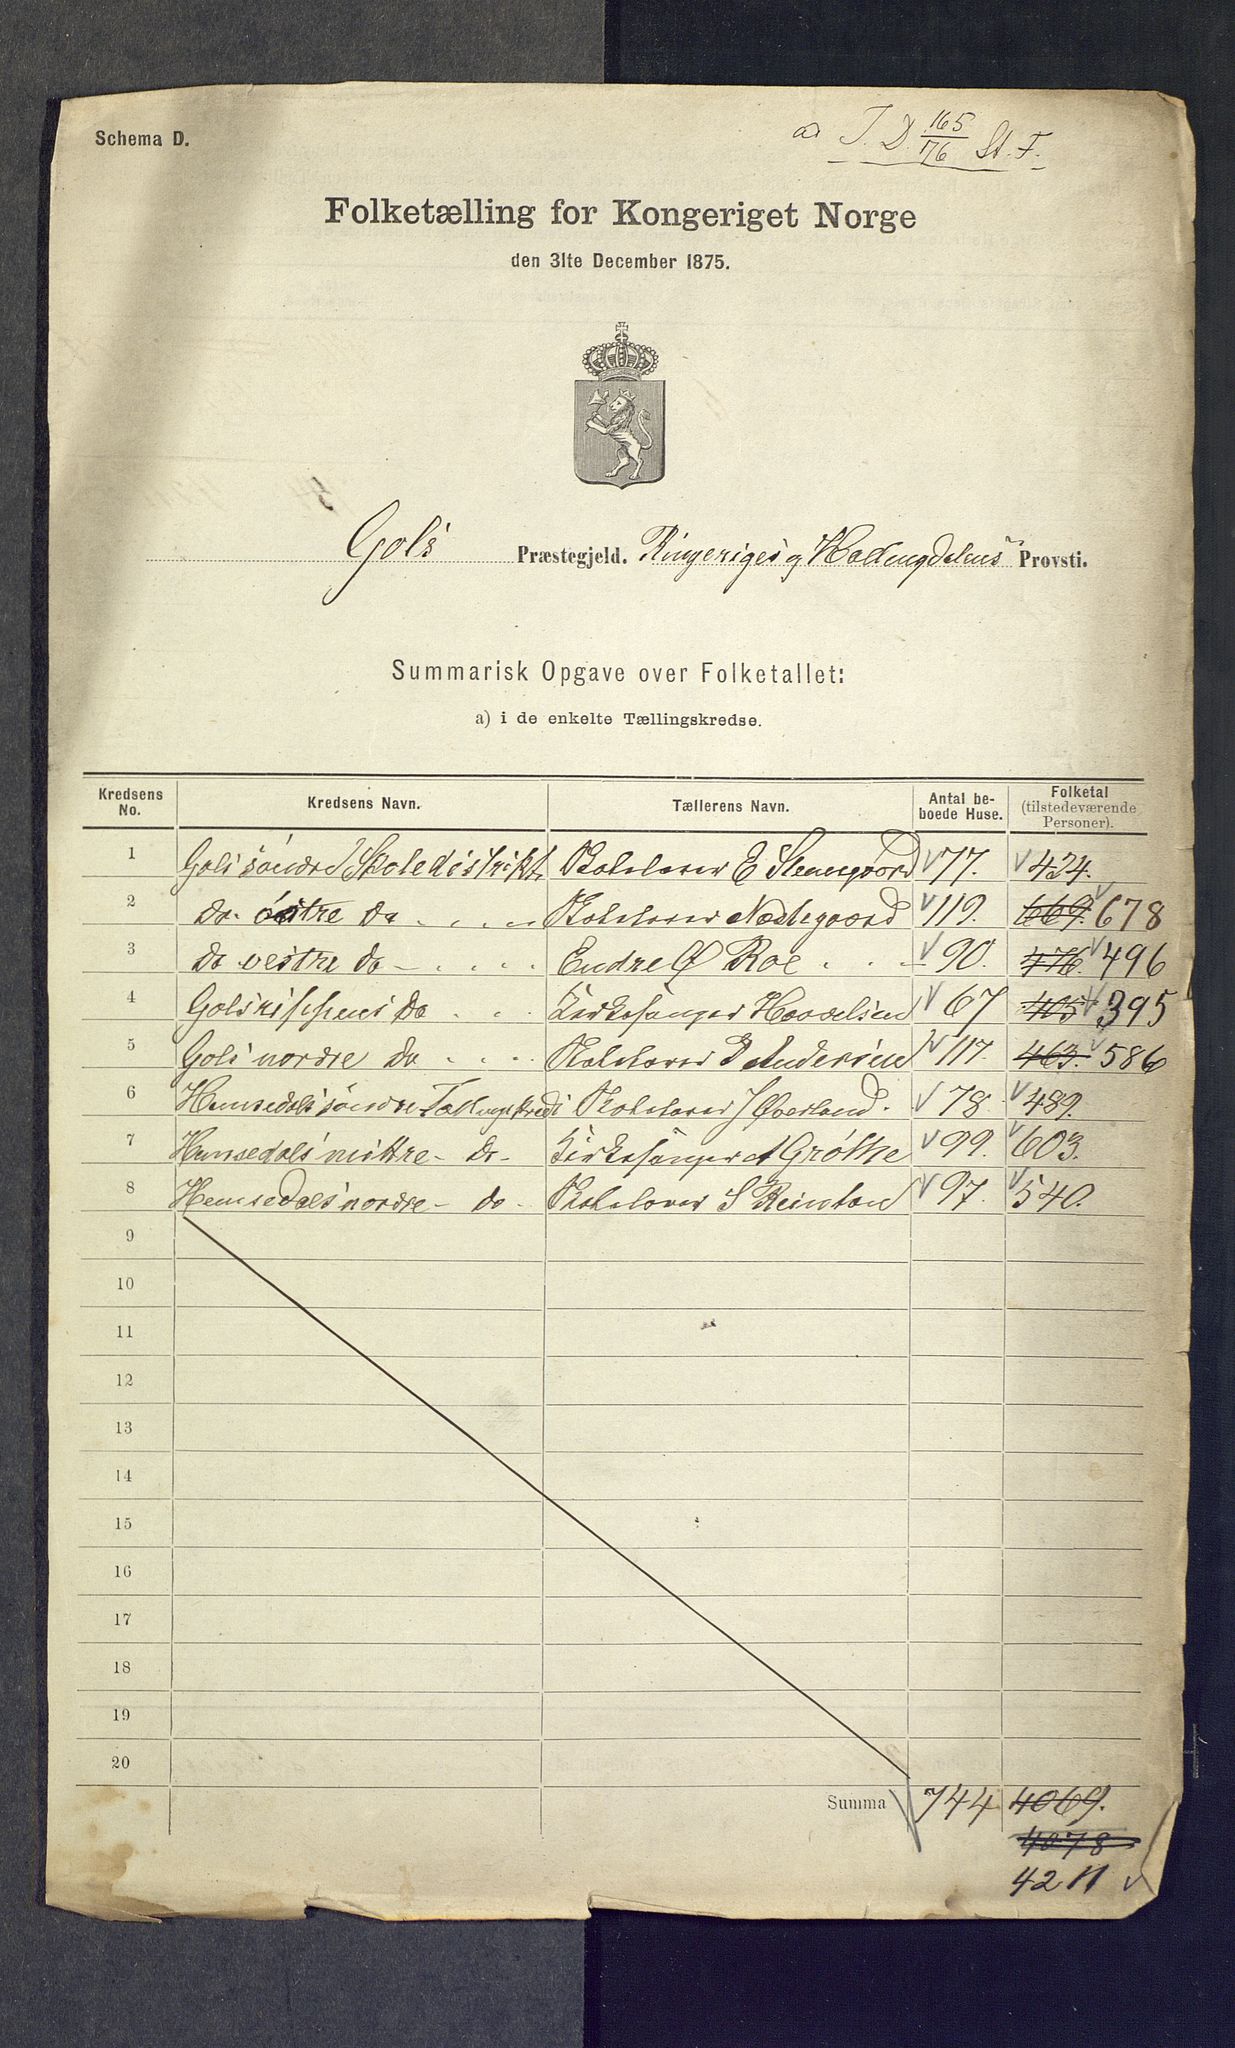 Schema D.
ad J. D. 165/76 St. F.
Folketælling for Kongeriget Norge
den 31te December 1875.
Gols Præstegjeld. Ringeriges og Hallingdalens Provsti.
Summarisk Opgave over Folketallet:
a) i de enkelte Tællingskredse.
Kredsens No. Kredsens Navn. Tællerens Navn. Antal beboede Huse. Folketal (tilstedeværende Personer).
1 Gols søndre Skoledistrikt. Skolelærer E Stenergaard 77. 424.
2 do. østre do Skolelærer Nedtegaard 119. 669. 678
3 do vestre do Endre Ø Roe 90. 476. 496
4 Gols do Kirkesanger 67 405 395
5 Gols nordre do Skolelærer Andersen 117. 463. 586
6 Hemsedals søndre Tællingskreds Skolelærer J Øverland. 78 489.
7 Hemsedals mittre do Kirkesanger A Grøthe 99. 603.
8 Hemsedals nordre do Skolelærer S Reinton 97. 540.
9
10
11
12
13
14
15
16
17
18
19
20
Summa 744 4069.
4078
4211